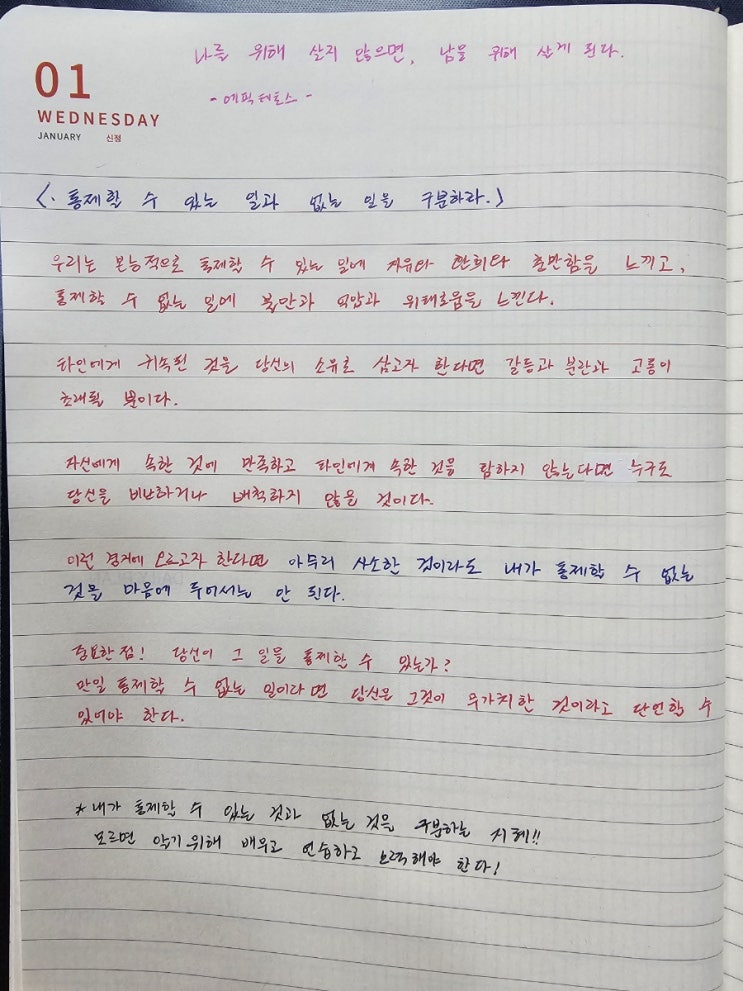 나를 위해 살지 않으면, 남을 위해 살게 된다.
- 에픽테토스 -
01
WEDNESDAY
JANUARY 신정
<· 통제할 수 있는 일과 없는 일을 구분하라.>
우리는 본능적으로 통제할 수 있는 일에 자유와 환희와 충만함을 느끼고,
통제할 수 없는 일에 불만과 억압과 위태로움을 느낀다.
타인에게 귀속된 것을 당신의 소유로 삼고자 한다면 갈등과 분란과 고통이
초래될 뿐이다.
자신에게 속한 것에 만족하고 타인에게 속한 것을 탐하지 않는다면 누구도
당신을 비난하거나 배척하지 않을 것이다.
이런 경지에 오르고자 한다면 아무리 사소한 것이라도 내가 통제할 수 없는
것을 마음에 두어서는 안 된다.
중요한 점! 당신이 그 일을 통제할 수 있는가?
만일 통제할 수 없는 일이라면 당신은 그것이 무가치한 것이라고 단언할 수
있어야 한다.
*내가 통제할 수 있는 것과 없는 것을 구분하는 지혜!!
모르면 알기 위해 배우고 연습하고 노력해야 한다!